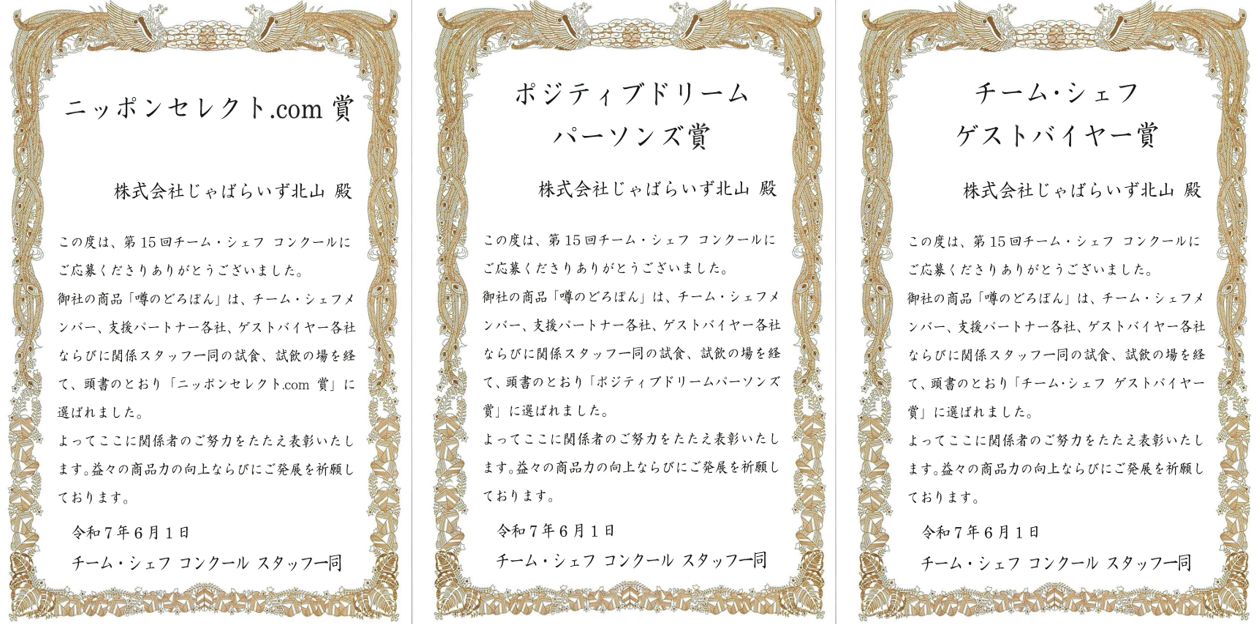 ニッポンセレクト.com 賞
株式会社じゃばらいず北山 殿
この度は、第 15 回チーム・シェフ コンクールに
ご応募くださりありがとうございました。
御社の商品「噂のどろぽん」は、チーム・シェフメ
ンバー、支援パートナー各社、ゲストバイヤー各社
ならびに関係スタッフ一同の試食、試飲の場を経
て、頭書のとおり「ニッポンセレクト.com 賞」に
選ばれました。
よってここに関係者のご努力をたたえ表彰いたし
ます。益々の商品力の向上ならびにご発展を祈願し
ております。
令和７年６月１日
チーム・シェフ コンクール スタッフ一同
ポジティブドリーム
パーソンズ賞
株式会社じゃばらいず北山 殿
この度は、第 15 回チーム・シェフ コンクールに
ご応募くださりありがとうございました。
御社の商品「噂のどろぽん」は、チーム・シェフメ
ンバー、支援パートナー各社、ゲストバイヤー各社
ならびに関係スタッフ一同の試食、試飲の場を経
て、頭書のとおり「ポジティブドリームパーソンズ
賞」に選ばれました。
よってここに関係者のご努力をたたえ表彰いたし
ます。益々の商品力の向上ならびにご発展を祈願し
ております。
令和７年６月１日
チーム・シェフ コンクール スタッフ一同
チーム・シェフ
ゲストバイヤー賞
株式会社じゃばらいず北山 殿
この度は、第 15 回チーム・シェフ コンクールに
ご応募くださりありがとうございました。
御社の商品「噂のどろぽん」は、チーム・シェフメ
ンバー、支援パートナー各社、ゲストバイヤー各社
ならびに関係スタッフ一同の試食、試飲の場を経
て、頭書のとおり「チーム・シェフ ゲストバイヤー
賞」に選ばれました。
よってここに関係者のご努力をたたえ表彰いたし
ます。益々の商品力の向上ならびにご発展を祈願し
ております。
令和７年６月１日
チーム・シェフ コンクール スタッフ一同